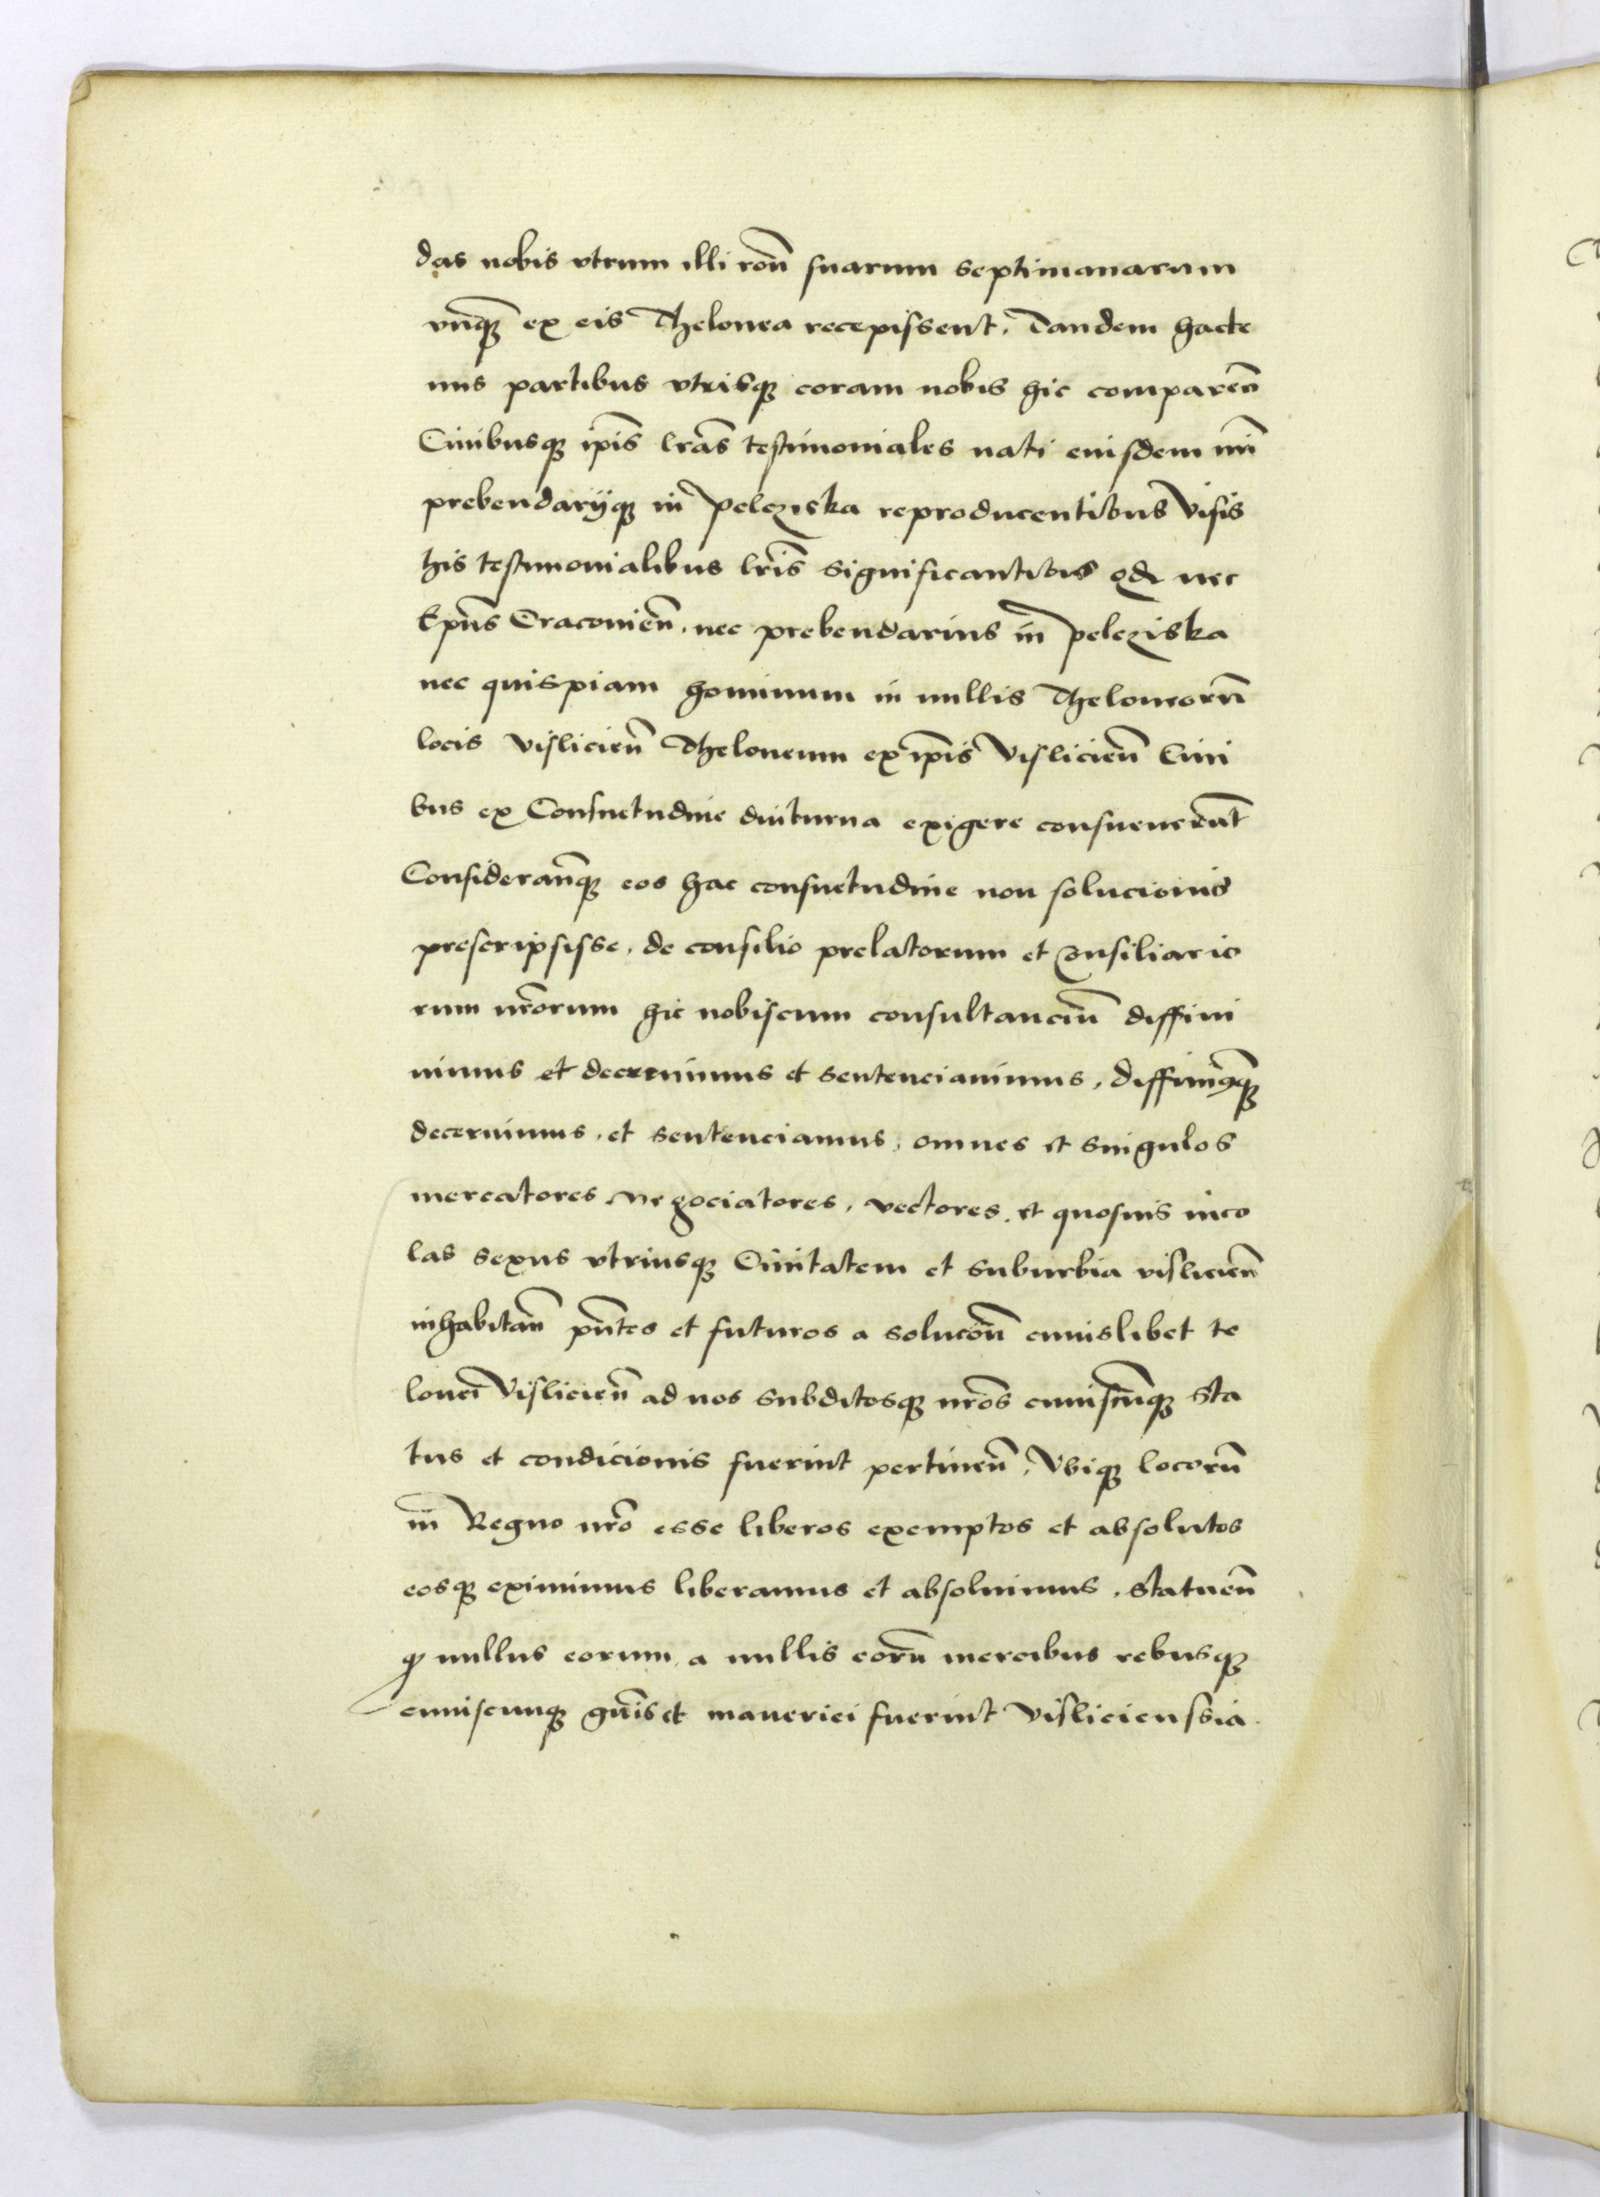 das nobis vtrum illi roñ suarum septimanarum
vnq̃ꝫ ex eis Thelonea recepissent. Tandem hacte
nus partibus vtrisqꝫ coram nobis hic compareñ
Ciuibusqꝫ ip̃is lr̃as testimoniales nati eiusdem
prebendarijqꝫ in Pelcziska reproducentibus Visis
his testimonialibus lr̃is significantibus qd nec
Ep̃us Cracouieñ. nec prebendarius in Pelcziska
nec quispiam hominum in nullis Theloneorũ
locis Vislicieñ Theloneum ex ip̃is Vislicieñ Ciui
bus ex Consuetudine diuturna exigere consueuerũt
Considerañqꝫ eos hac consuetudine non solucionis
prescripsisse. de consilio prelatorum et consiliario
rum nr̃orum hic nobiscum consultanciũ diffini
uimus et decreuimus et sentenciauimus, diffinimꝰqꝫ
decernimus. et sentenciamus, omnes et singulos
mercatores negociatores, vectores. et quosuis inco
las sexus vtriusqꝫ Ciuitatem et suburbia vislicieñ
inhabitañ p̃ntes et futuros a solucõñ cuiuslibet te
lonei Vislicieñ ad nos subditosqꝫ nr̃os cuiuscũqꝫ sta
tus et condicionis fuerint pertineñ, Vbiqꝫ locorũ
in Regno nr̃o esse liberos exemptos et absolutos
eosqꝫ eximimus liberamus et absoluimus. Statueñ
ꝙ nullus eorum a nullis eorũ mercibus rebusqꝫ
cuiuscunqꝫ gñis et maneriei fuerint Visliciensia.